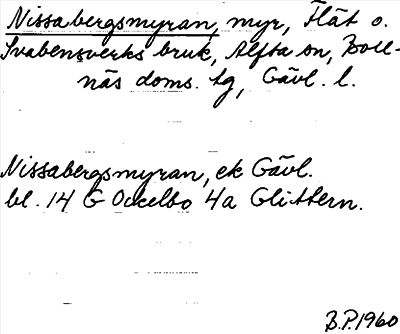 Nissabergsmyran, myr, Flät o.
Svabensverks bruk, Alfta sn, Boll-
näs doms. tg, Gävl. l.
Nissabergsmyran, ek Gävl.
bl. 14 G Ockelbo 4a Glittern.
B.P. 1960